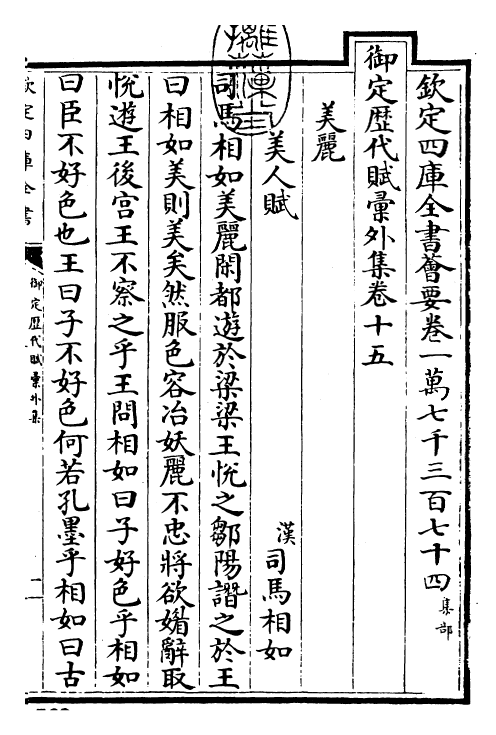 欽定四庫全書薈要卷一萬七千三百七十四集部
御定歷代賦彙外集卷十五
美麗
美人賦 漢司馬相如
司馬相如美麗閑都遊於梁梁王悅之鄒陽譖之於王
曰相如美則美矣然服色容冶妖麗不忠將欲媚辭取
悅遊王後宮王不察之乎王問相如曰子好色乎相如
曰臣不好色也王曰子不好色何若孔墨乎相如曰古
欽定四庫全書
御定歷代賦彙外集